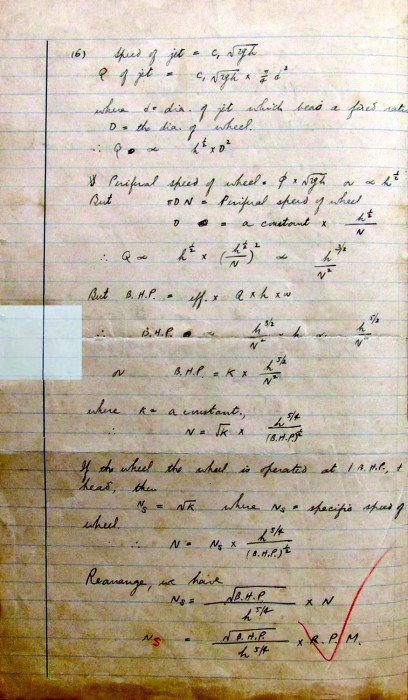 (6) Speed of jet = c, √2gh
Q of jet = c, √2gh × π/4 d²
where d = dia. of jet which bears a fixed ratio
D = the dia. of wheel.
∴ Q ∝ h^½ × D²
V Perifiral speed of wheel = φ × √2gh or ∝ h^½
But πDN = Perifiral speed of wheel
D = a constant × h^½/N
∴ Q ∝ h^½ × (h^½/N)² ∝ h^3/2/N²
But B.H.P. = eff. × Q × h × w
∴ B.H.P. ∝ h^3/2/N² × h ∝ h^5/2/N²
or B.H.P. = K × h^5/2/N²
where K = a constant,
∴ N = √K × h^5/4/(B.H.P.)^½
If the wheel the wheel is operated at 1 B.H.P., +
head, then
Ns = √K where Ns = specific speed of
wheel.
∴ N = Ns × h^5/4/(B.H.P.)^½
Rearrange, we have
Ns = √B.H.P./h^5/4 × N
Ns = √B.H.P./h^5/4 × R.P.M.